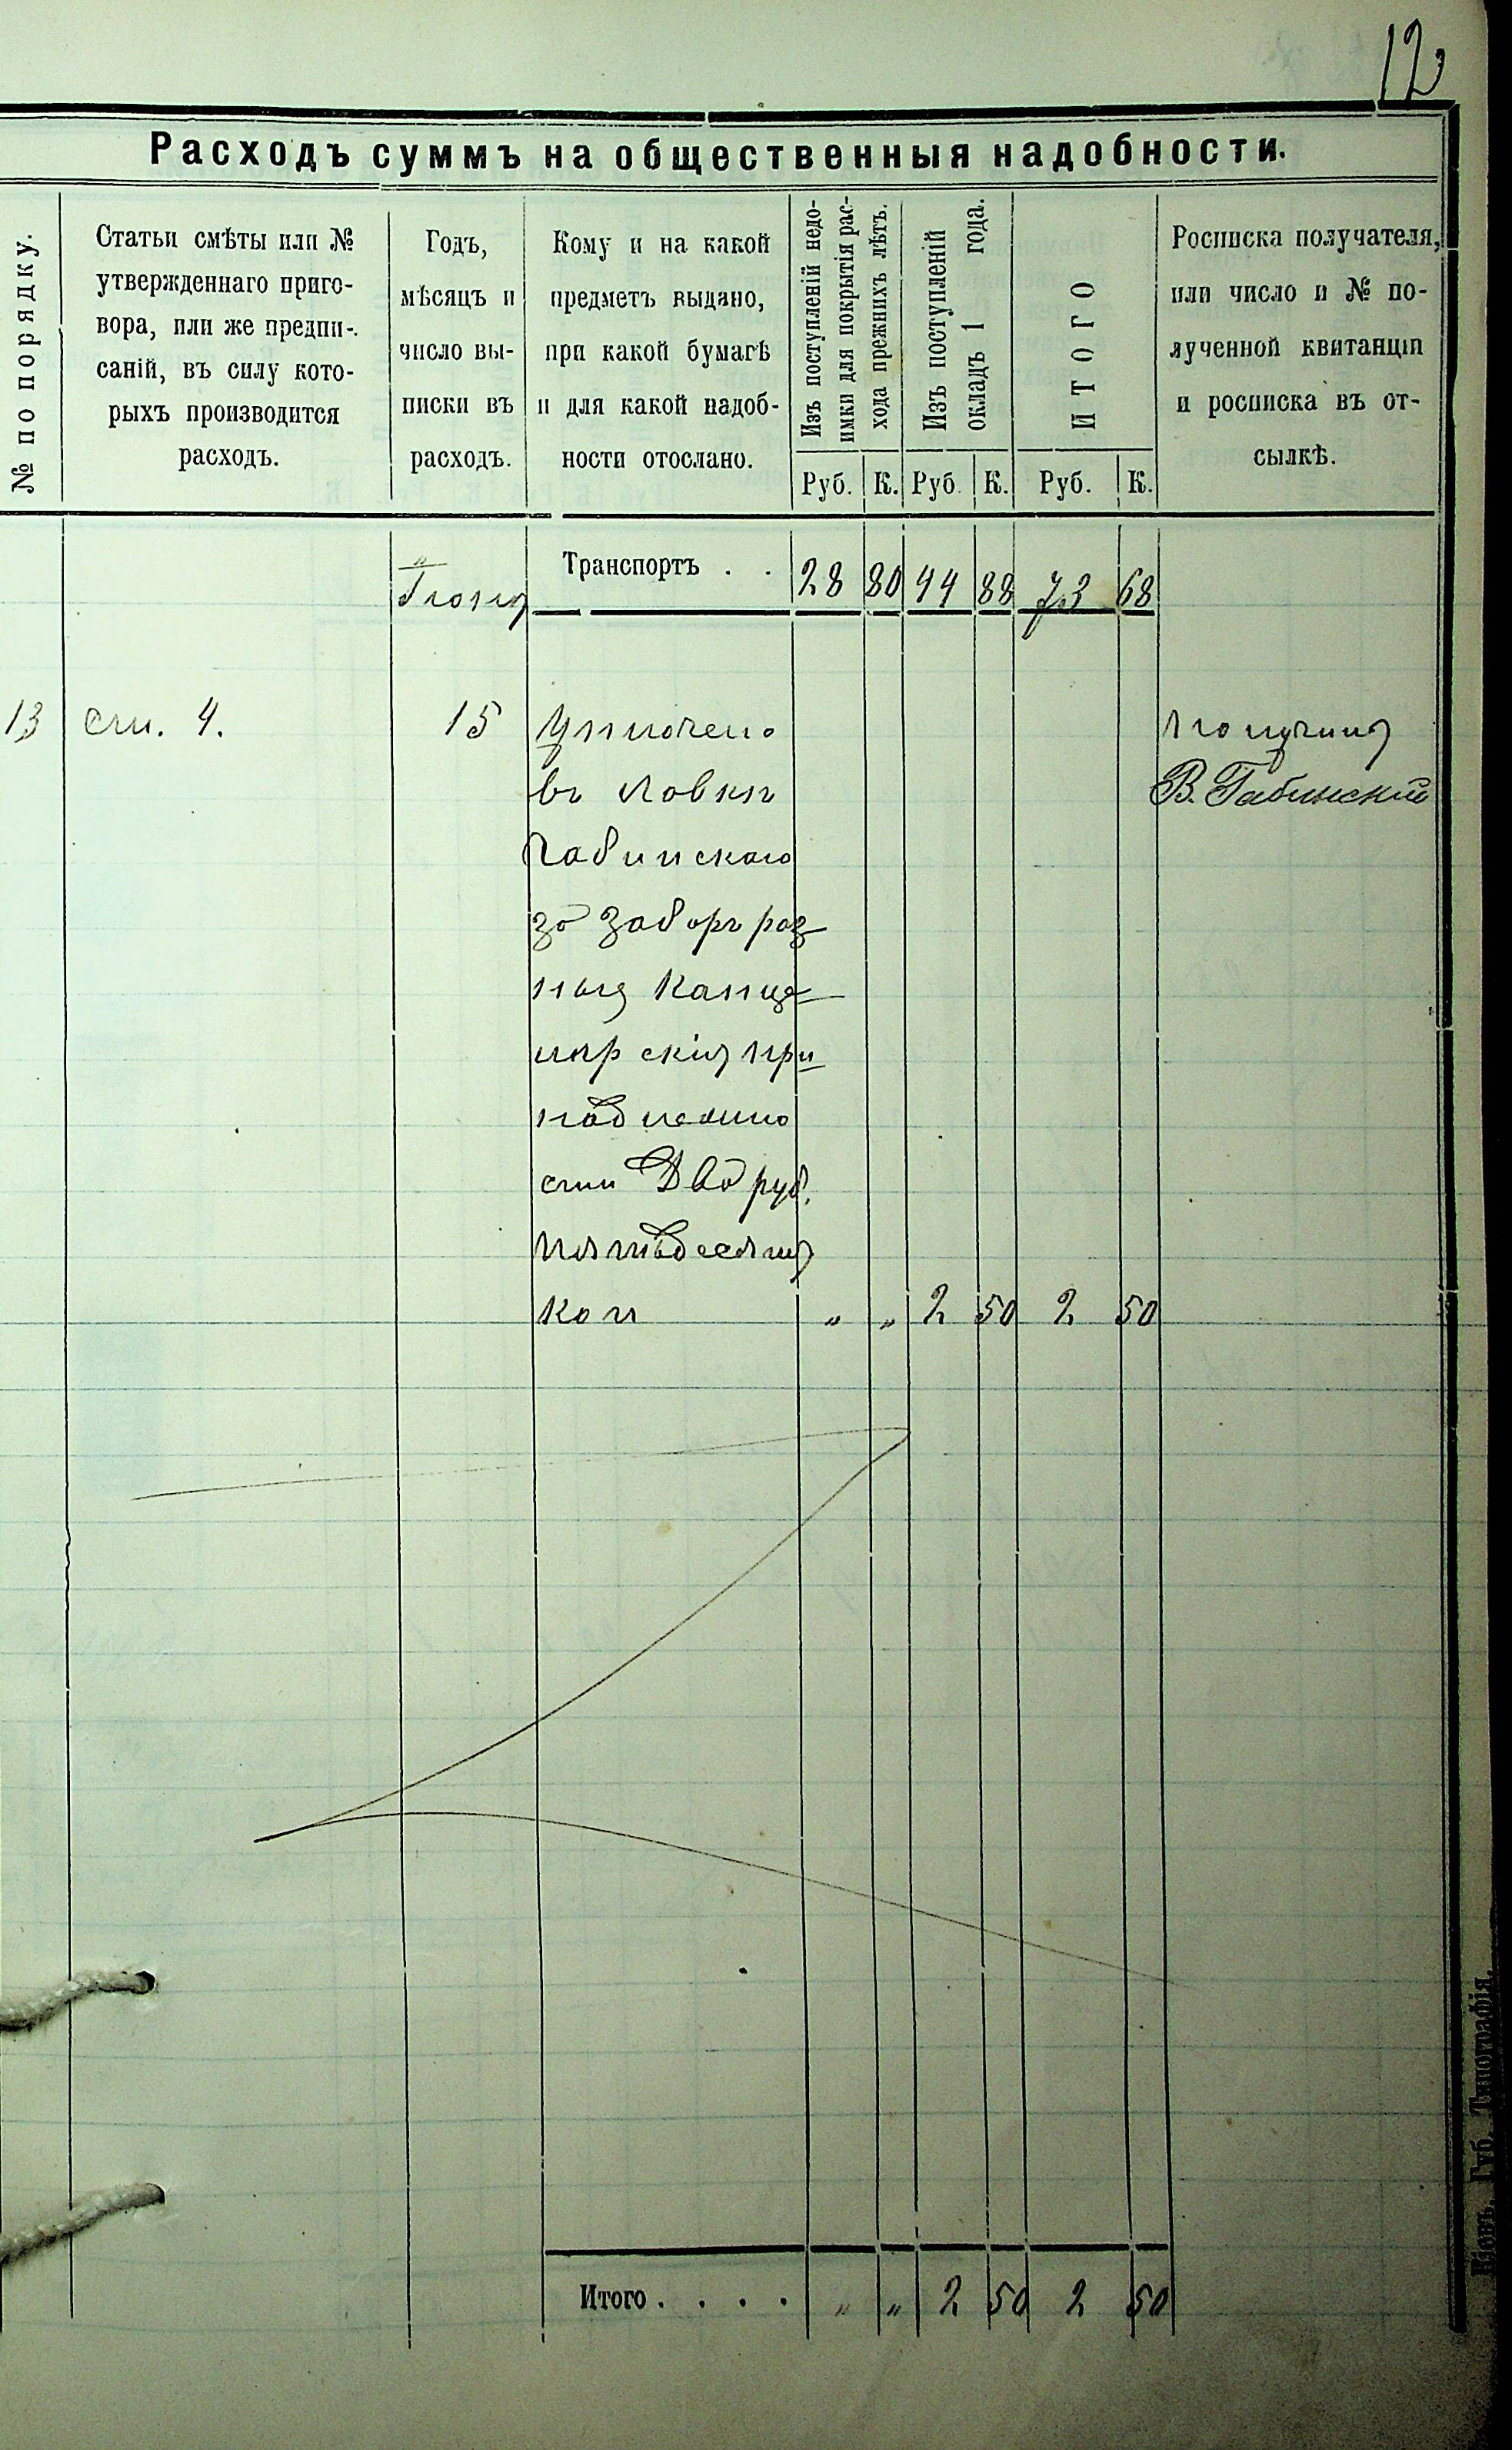 12
Расходъ суммъ на общественныя надобности.
№ по порядку.
Статьи смѣты или №
утвержденнаго приго-
вора, или же предпи-
саній, въ силу кото-
рыхъ производится
расходъ.
Годъ,
мѣсяцъ и
число вы-
писки въ
расходъ.
Кому и на какой
предметъ выдано,
при какой бумагѣ
и для какой надоб-
ности отослано.
Изъ поступленій недо-
имки для покрытія рас-
хода прежнихъ лѣтъ.
Изъ поступленій
окладъ 1 года.
ИТОГО
Руб. К. Руб. К. Руб. К.
Росписка получателя,
или число и № по-
лученной квитанціи
и росписка въ от-
сылкѣ.
Транспортъ . . 28 80 44 88 73 68
Іюля
13 ст. 4. 15 Уплочено
въ лавкѣ
Габинскаго
за заборъ раз
ныя Канце-
лярскія при
надлежно
сти Два руб.
пятьдесятъ
коп " " 2 50 2 50
получилъ
В. Габинскій
Итого . . . . " " 2 50 2 50
Кіевъ. Губ. Типографія.